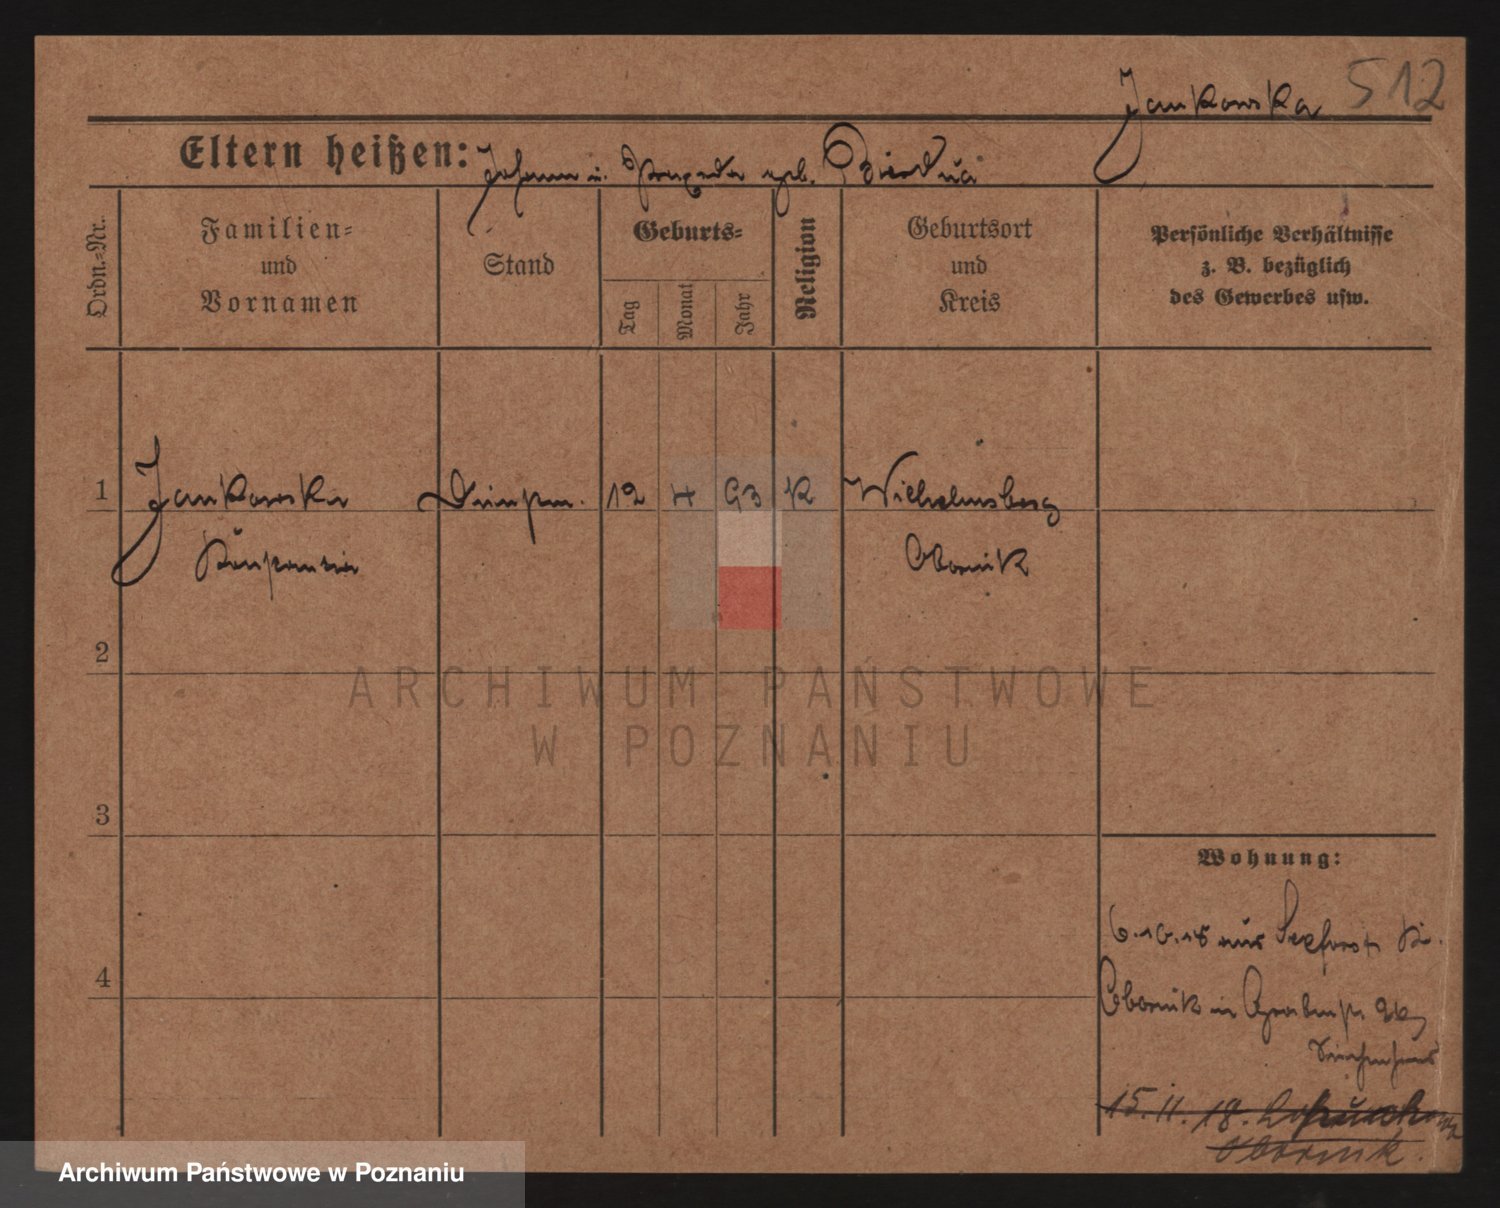 Jankowska 512
Eltern heißen: Johann u. geb.
Ordn.=Nr.
Familien=
und
Vornamen
Stand
Geburts=
Tag
Monat
Jahr
Religion
Geburtsort
und
Kreis
Persönliche Verhältnisse
z. B. bezüglich
des Gewerbes usw.
1 Jankowska 12 4 93 K Wilhelmsberg
Obornik
2
ARCHIWUM PAŃSTWOWE
W POZNANIU
3
Wohnung:
6.10.18 aus Seeforst Kr.
4
Obornik in
15.11.18.
Obornik.
Archiwum Państwowe w Poznaniu